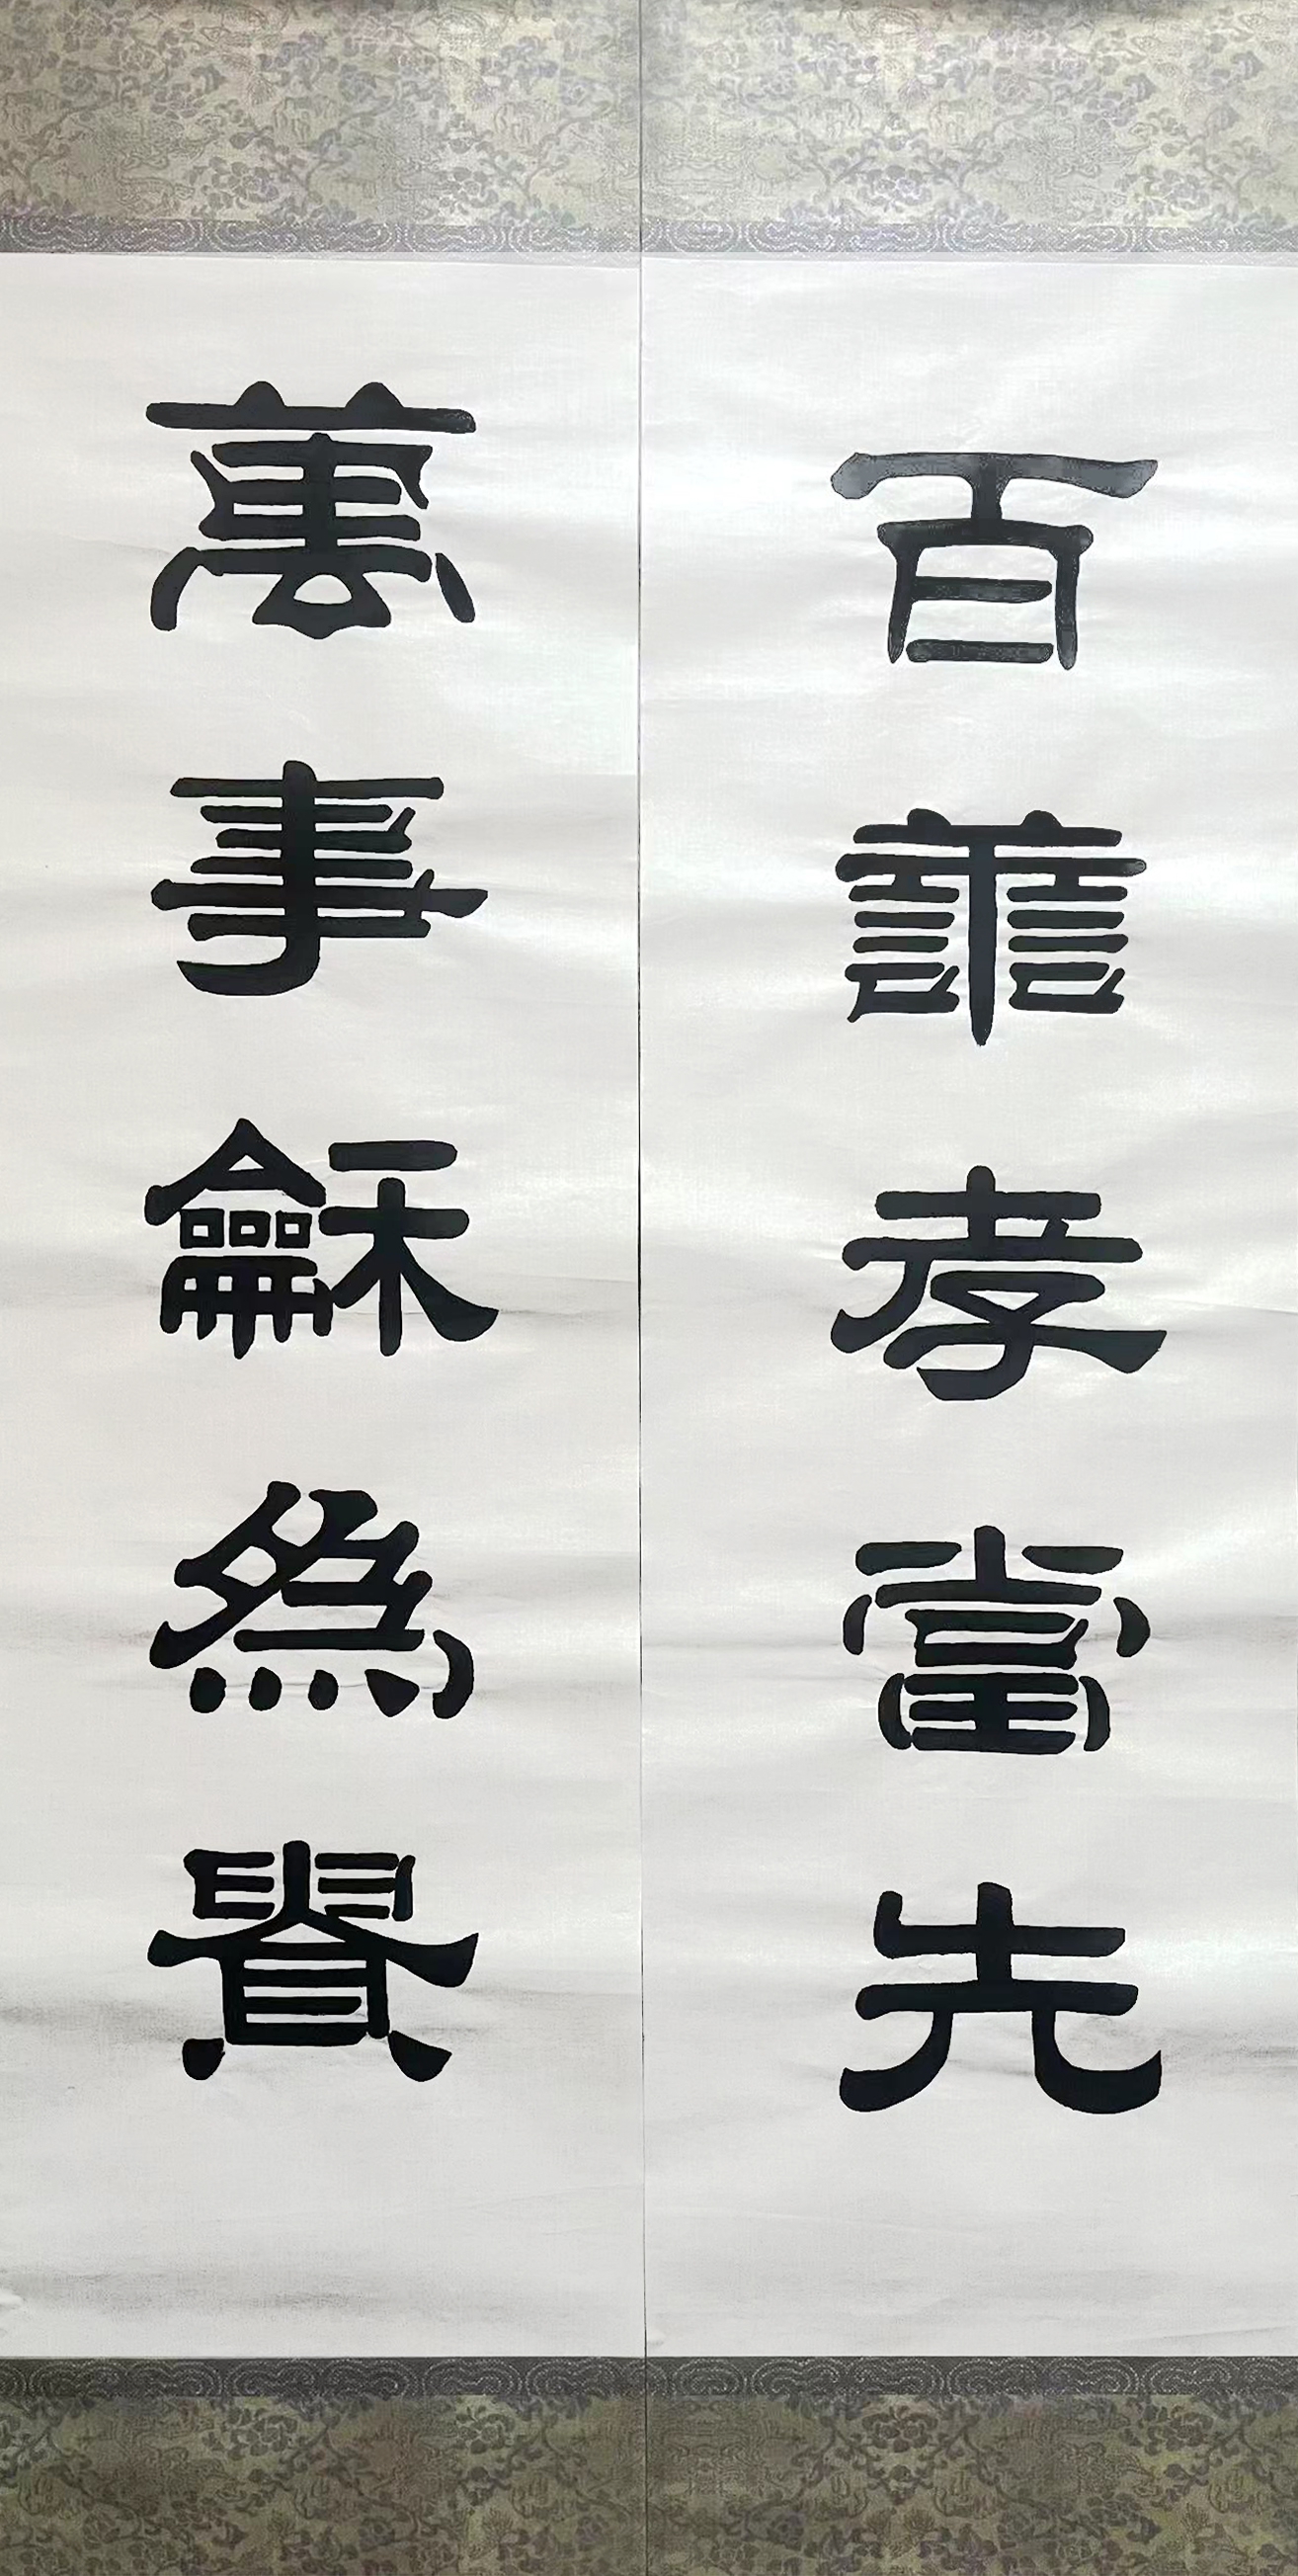 百善孝當先
萬事龢為貴